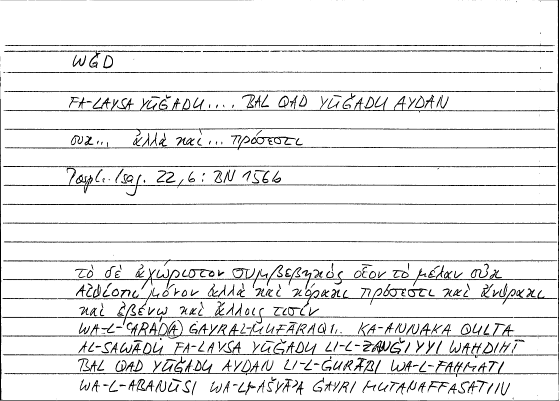 WǦD
FA-LAYSA YŪǦADU.... BAL QAD YŪǦADU AYḌAN
οὐκ... ἀλλὰ καὶ... πρόσεστι
Porph. Isag. 22,6: BN 1566
τὸ δὲ ἀχώριστον συμβεβηκὸς οἷον τὸ μέλαν οὐκ
Αἰθίοπι μόνον ἀλλὰ καὶ κόρακι πρόσεστι καὶ ἄνθρακι
καὶ ἐβένῳ καὶ ἄλλοις τισίν
WA-L-ʿARAḌ(A) ĠAYRAL-MUFĀRAQI.. KA-ANNAKA QULTA
AL-SAWĀDU FA-LAYSA YŪǦADU LI-L-ZANǦIYYI WAḤDIHĪ
BAL QAD YŪǦADU AYḌAN LI-L-ĠURĀBI WA-L-FAḤMATI
WA-L-ABANŪSI WA-LI-AŠYĀʾA ĠAYRI MUTANAFFASATIN